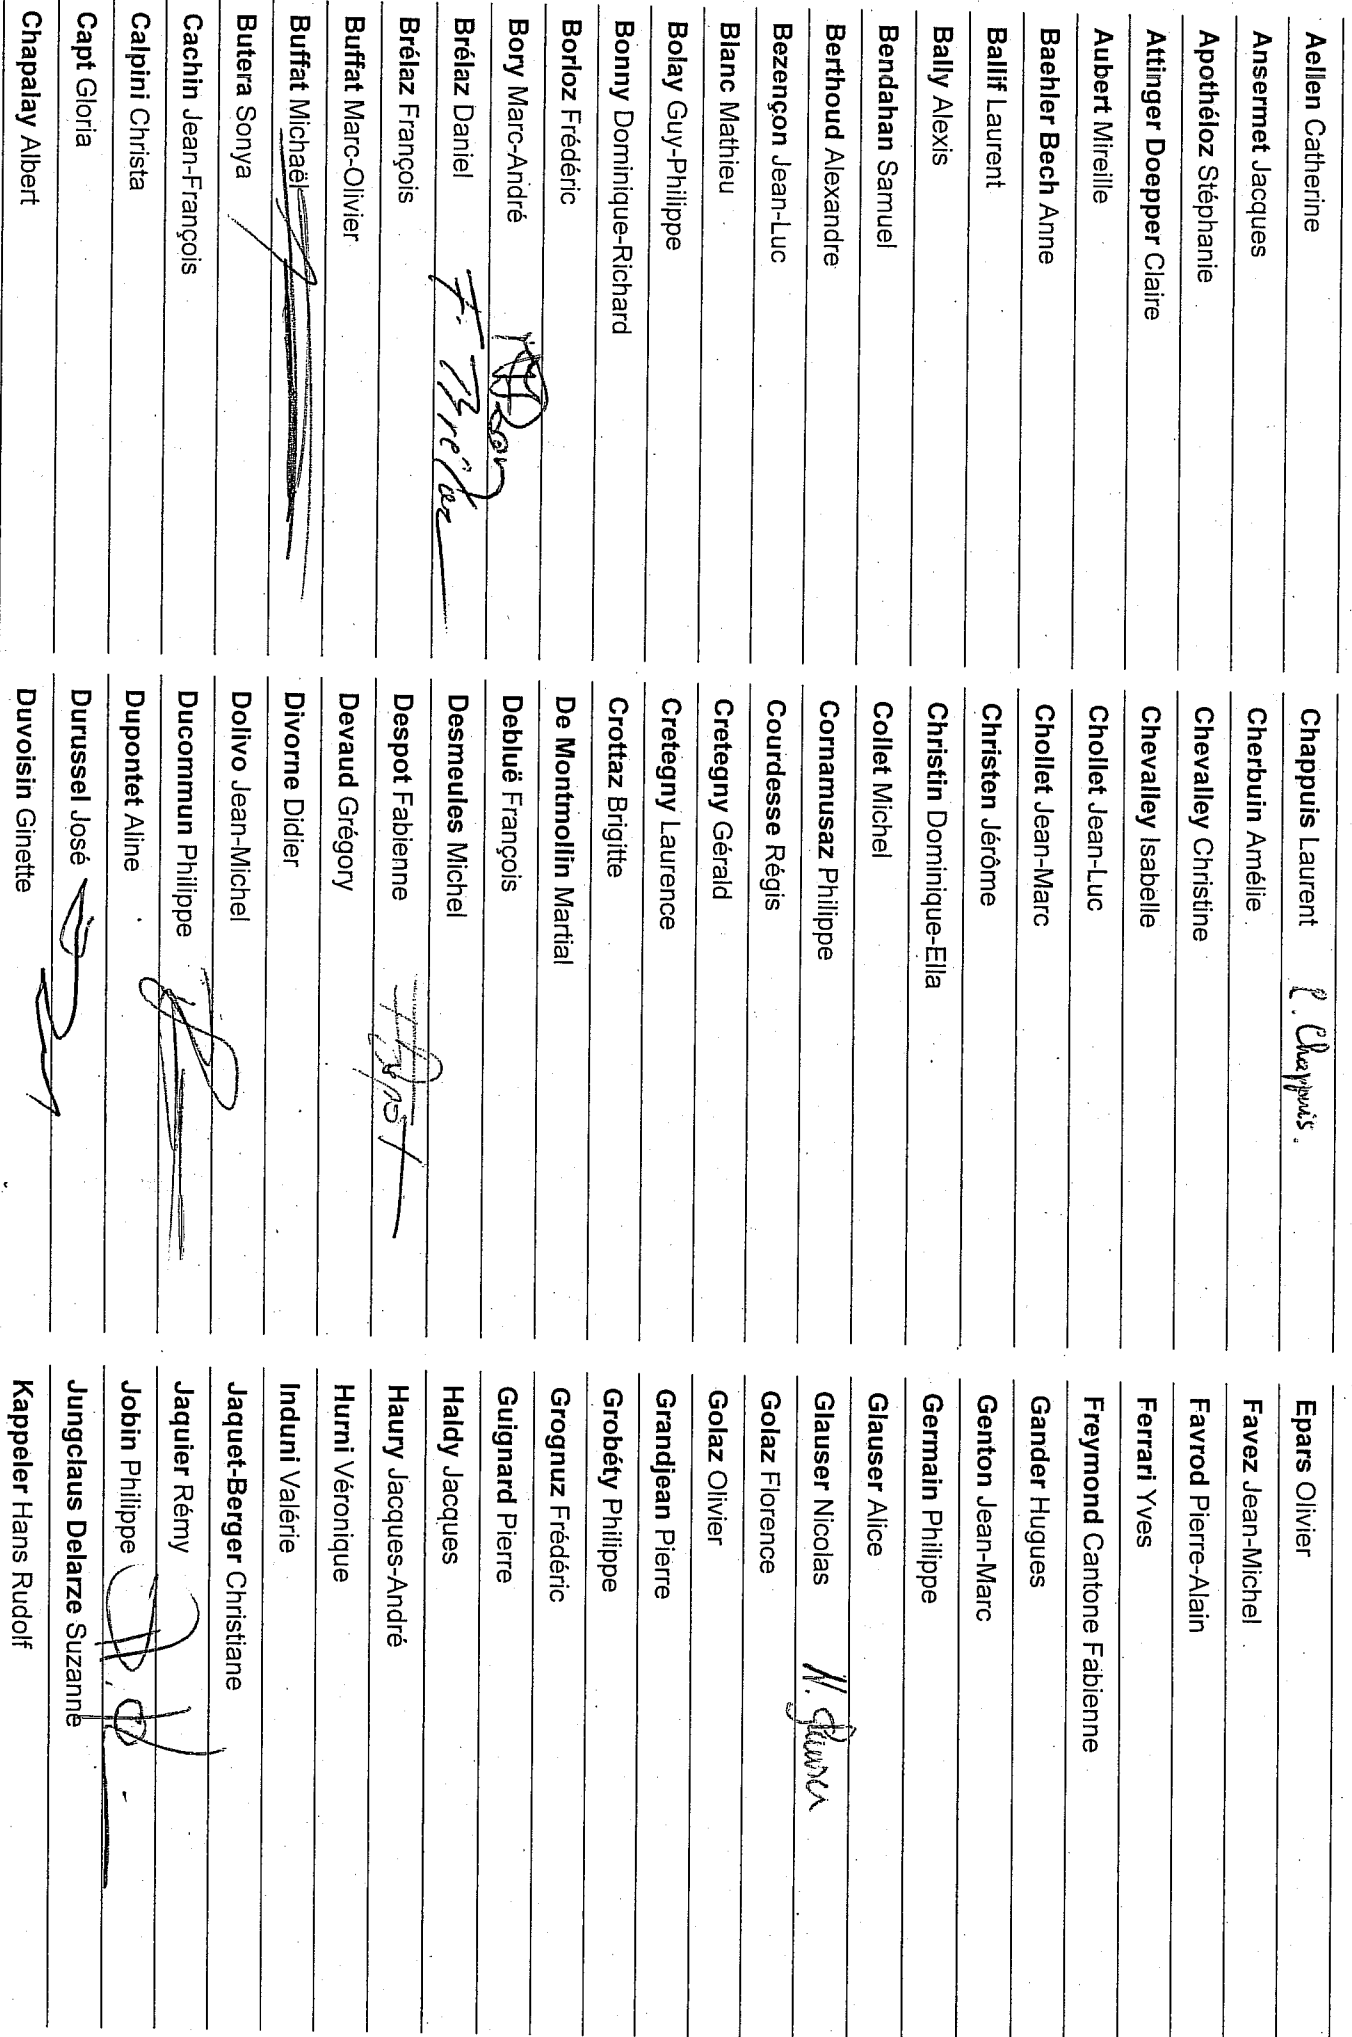 Aellen Catherine
Ansermet Jacques
Apothéloz Stéphanie
Attinger Doepper Claire
Aubert Mireille
Baehler Bech Anne
Ballif Laurent
Bally Alexis
Bendahan Samuel
Berthoud Alexandre
Bezençon Jean-Luc
Blanc Mathieu
Bolay Guy-Philippe
Bonny Dominique-Richard
Borloz Frédéric
Bory Marc-André
Brélaz Daniel
F. Brélaz
Brélaz François
Buffat Marc-Olivier
Buffat Michaël
Butera Sonya
Cachin Jean-François
Calpini Christa
Capt Gloria
Chapalay Albert
Chappuis Laurent L. Chappuis.
Cherbuin Amélie
Chevalley Christine
Chevalley Isabelle
Chollet Jean-Luc
Chollet Jean-Marc
Christen Jérôme
Christin Dominique-Ella
Collet Michel
Cornamusaz Philippe
Courdesse Régis
Cretegny Gérald
Cretegny Laurence
Crottaz Brigitte
De Montmollin Martial
Debluë François
Desmeules Michel
Despot Fabienne
Devaud Grégory
Divorne Didier
Dolivo Jean-Michel
Ducommun Philippe
Dupontet Aline
Durussel José
Duvoisin Ginette
Epars Olivier
Favez Jean-Michel
Favrod Pierre-Alain
Ferrari Yves
Freymond Cantone Fabienne
Gander Hugues
Genton Jean-Marc
Germain Philippe
Glauser Alice
Glauser Nicolas N. Glauser
Golaz Florence
Golaz Olivier
Grandjean Pierre
Grobéty Philippe
Grognuz Frédéric
Guignard Pierre
Haldy Jacques
Haury Jacques-André
Hurni Véronique
Induni Valérie
Jaquet-Berger Christiane
Jaquier Rémy
Jobin Philippe
Jungclaus Delarze Suzanne
Kappeler Hans Rudolf